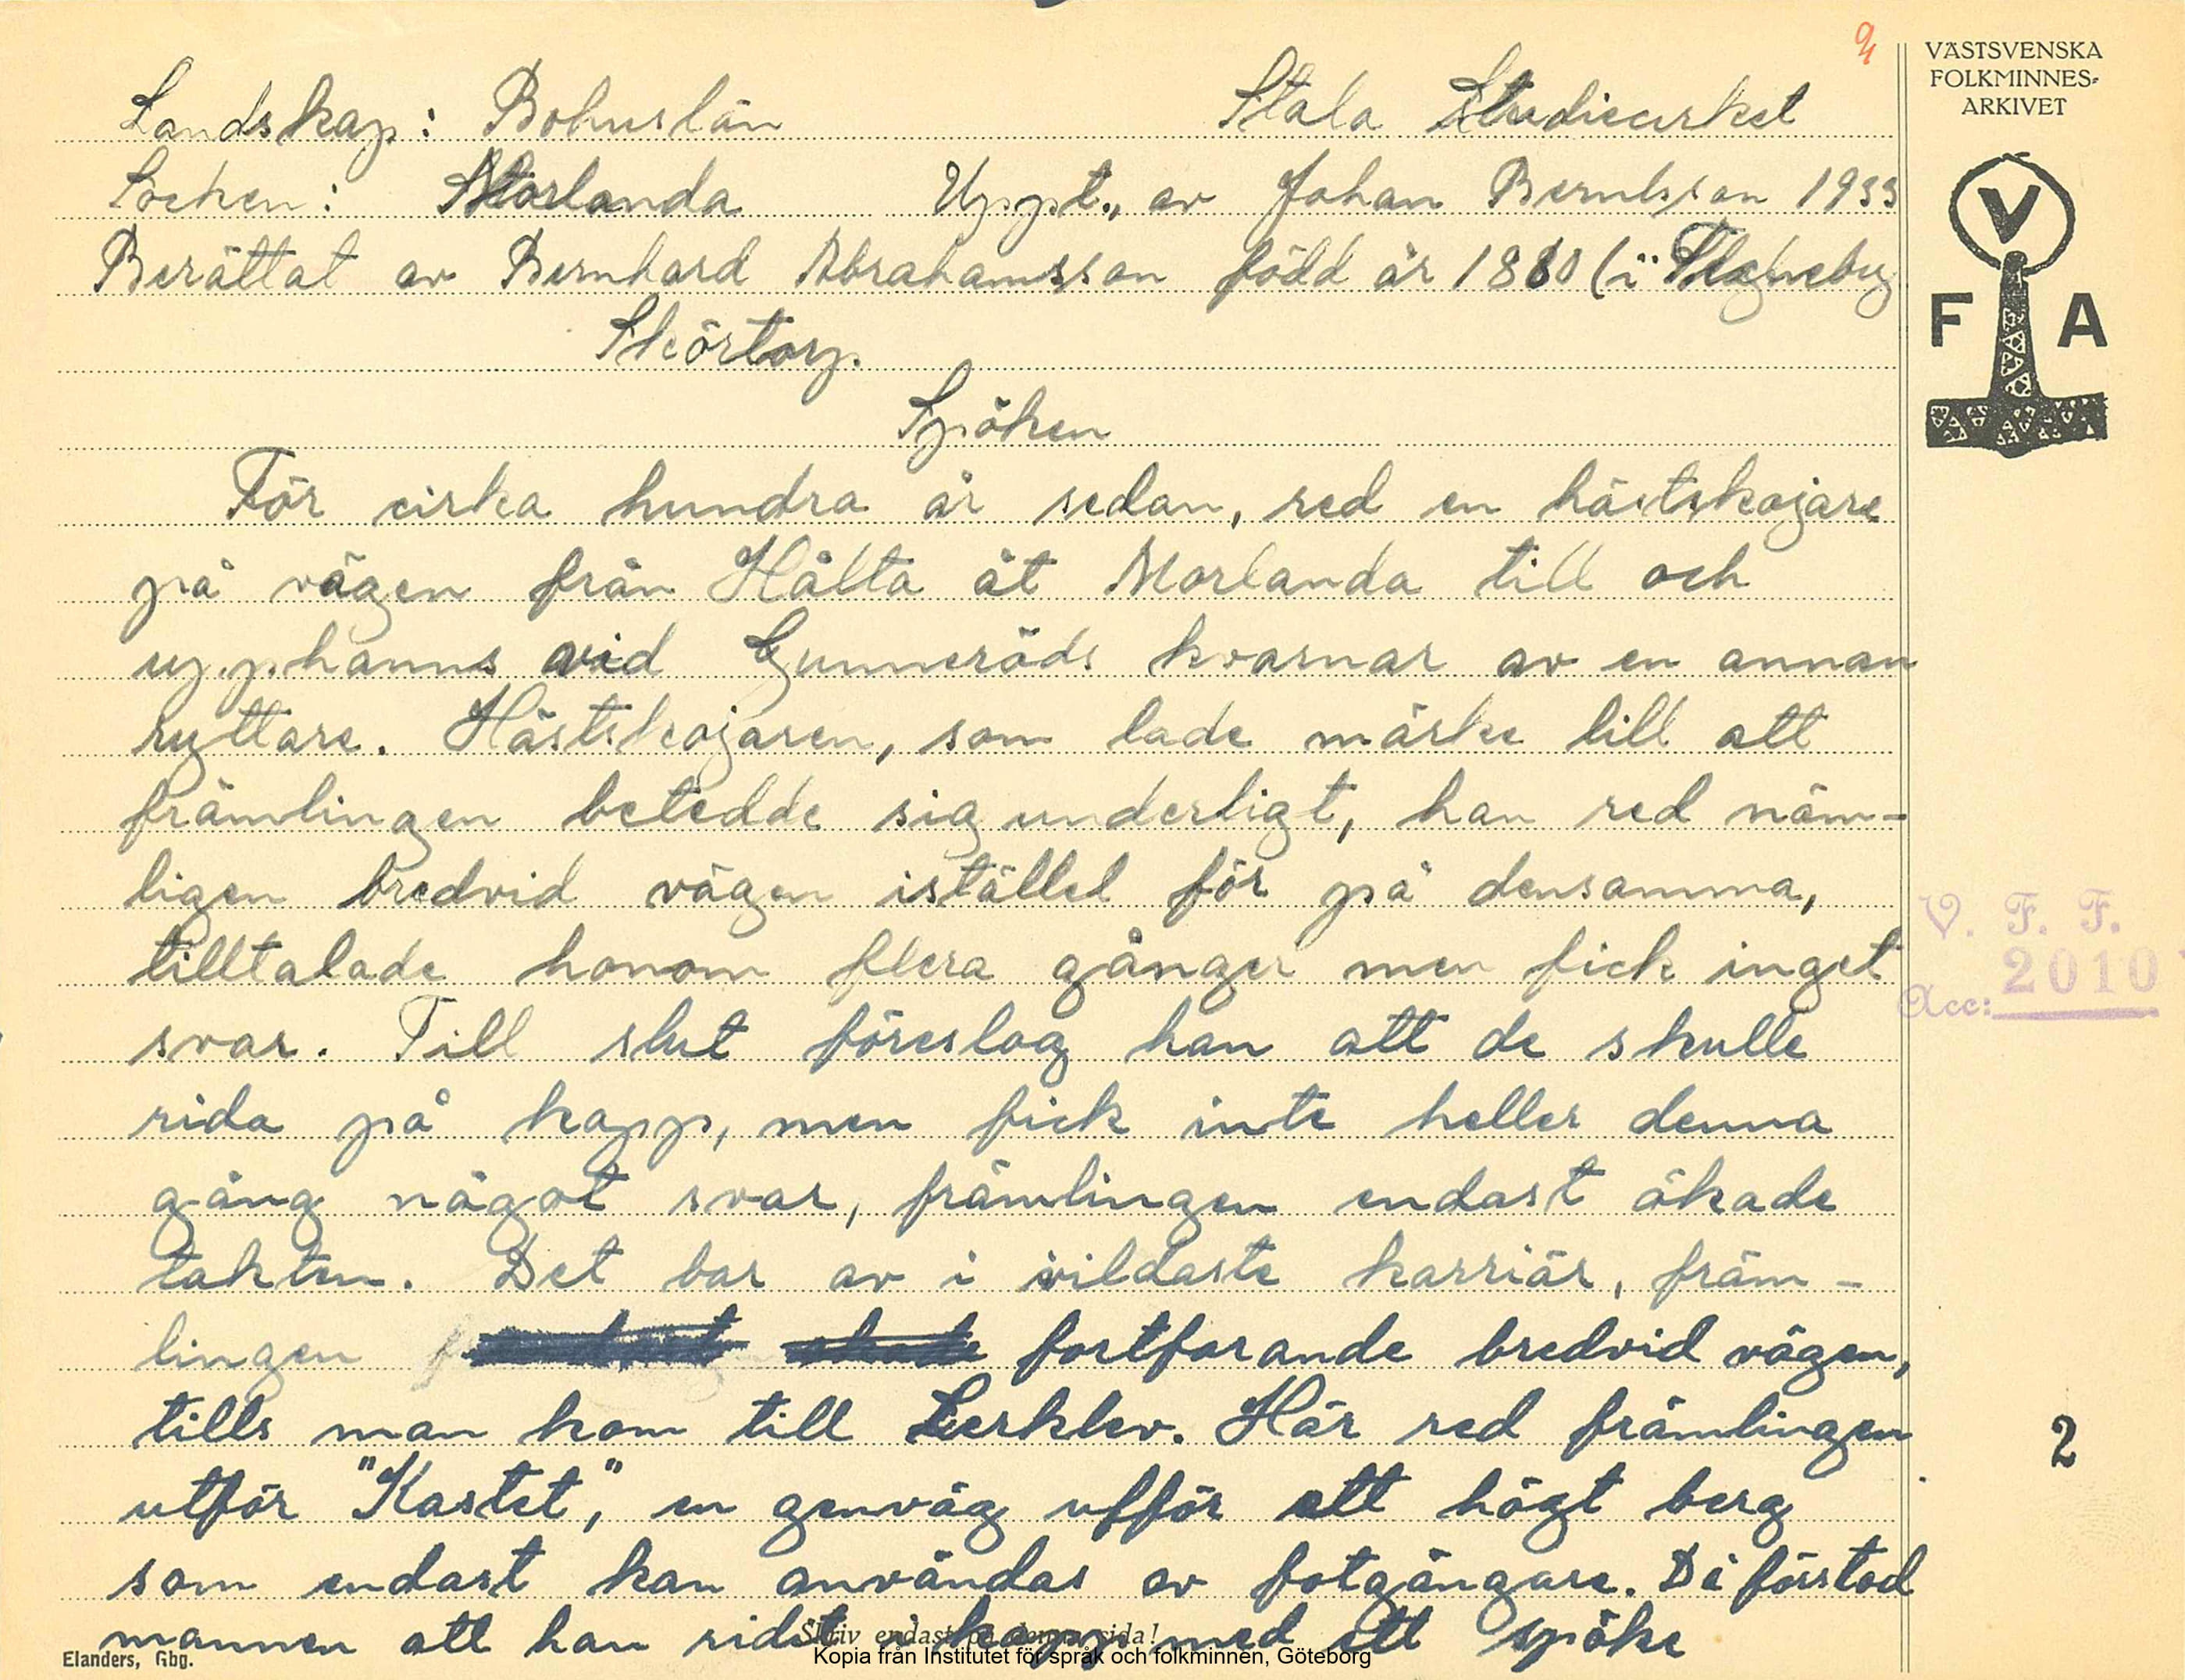 Landskap: Bohuslän Stala Studiecirkel
Socken: Morlanda Uppt., av Johan Berntsson 1933
Berättat av Bernhard Abrahamsson född år 1880 (i
Skörtorp.
Spöken
För cirka hundra år sedan, red en hästskojare
på vägen från Hålta åt Morlanda till och
upphanns vid Gunneröds kvarnar av en annan
ryttare. Hästskojaren, som lade märke till att
främlingen betedde sig underligt, han red näm-
ligen bredvid vägen istället för på densamma,
tilltalade honom flera gånger men fick inget
svar. Till slut föreslog han att de skulle
rida på kapp, men fick inte heller denna
gång något svar, främlingen endast ökade
takten. Det bar av i vildaste karriär, främ-
lingen fortfarande bredvid vägen,
tills man kom till Lerklev. Här red främlingen
utför "Kastet", en genväg utför ett högt berg
som endast kan användas av fotgängare. Då förstod
mannen att han ridit i kapp med ett spöke
Skriv endast på denna sida!
Elanders, Gbg.
Kopia från Institutet för språk och folkminnen, Göteborg
9/4
VÄSTSVENSKA
FOLKMINNES-
ARKIVET
V
F A
V. F. F.
Acc: 2010
2